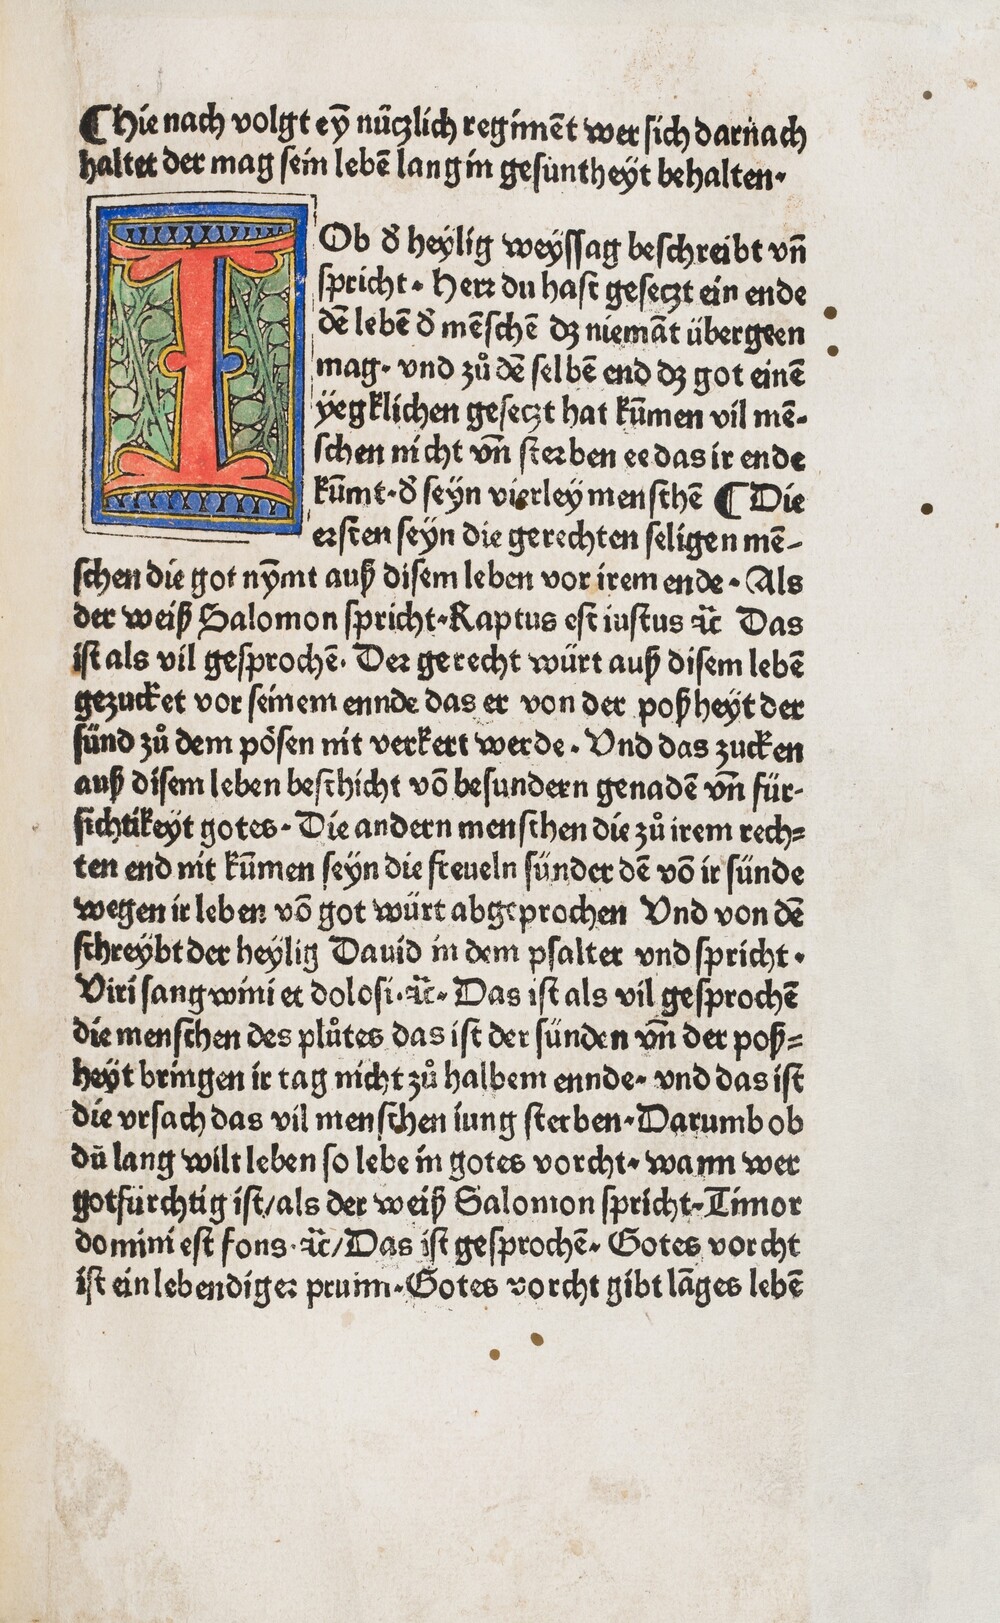 ¶ Hie nach volgt eỹ nüczlich regimēt wer sich darnach
haltet der mag sein lebē lang in gesuntheyt behalten·
I Ob d̄ heylig weyssag beschreibt vn̄
spricht· Herr du hast geseczt ein ende
dē lebē d̄ mēschē dz niemāt übergeen
mag· vnd zů dē selbē end dz got einē
yegklichen geseczt hat kūmen vil mē-
schen nicht vn̄ sterben ee das ir ende
kūmt· d̄ seyn vierley menschē ¶ Die
ersten seyn die gerechten seligen mē-
schen die got nȳmt auß disem leben vor irem ende· Als
der weiß Salomon spricht· Raptus est iustus ⁊c̄ Das
ist als vil gesprochē· Der gerecht würt auß disem lebē
gezucket vor seinem ennde das er von der poßheyt der
sünd zů dem pösen nit verkert werde· Vnd das zucken
auß disem leben beschicht vō besundern genadē vn̄ für-
sichtikeyt gotes· Die andern menschen die zů irem rech-
ten end nit kūmen seyn die freueln sünder dē vō ir sünde
wegen ir leben vō got würt abgeprochen Vnd von dē
schreybt der heylig Dauid in dem psalter vnd spricht·
Viri sangwini et dolosi· ⁊c̄· Das ist als vil gesprochē
die menschen des plůtes das ist der sünden vn̄ der poß-
heyt bringen ir tag nicht zů halbem ennde· vnd das ist
die vrsach das vil menschen iung sterben· Darumb ob
dü lang wilt leben so lebe in gotes vorcht· wann wer
gotfürchtig ist/als der weiß Salomon spricht· Timor
domini est fons· ⁊c̄/Das ist gesprochē· Gotes vorcht
ist ein lebendiger prunn· Gotes vorcht gibt lāges lebē